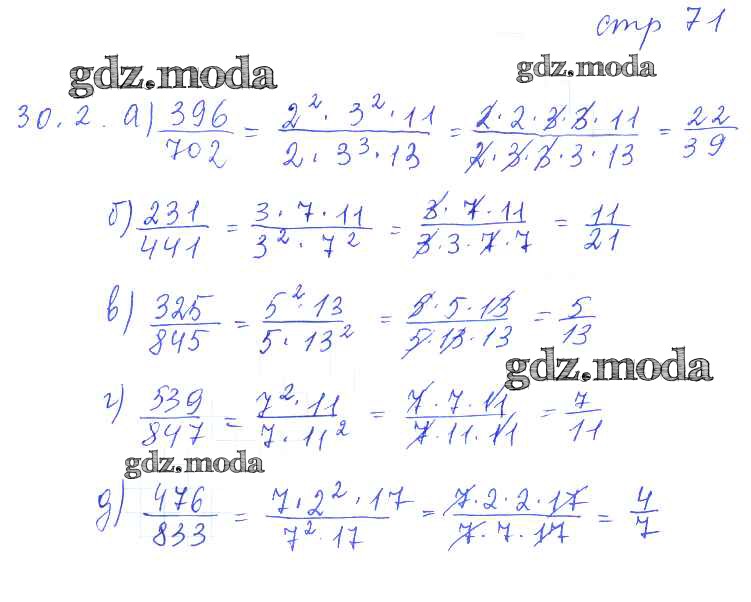 стр 71
gdz.moda gdz.moda
30.2. а) 396/702 = 2²·3²·11/2·3³·13 = 2·2·3·3·11/2·3·3·3·13 = 22/39
б) 231/441 = 3·7·11/3²·7² = 3·7·11/3·3·7·7 = 11/21
в) 325/845 = 5²·13/5·13² = 5·5·13/5·13·13 = 5/13
gdz.moda
г) 539/847 = 7²·11/7·11² = 7·7·11/7·11·11 = 7/11
gdz.moda
д) 476/833 = 7·2²·17/7²·17 = 7·2·2·17/7·7·17 = 4/7